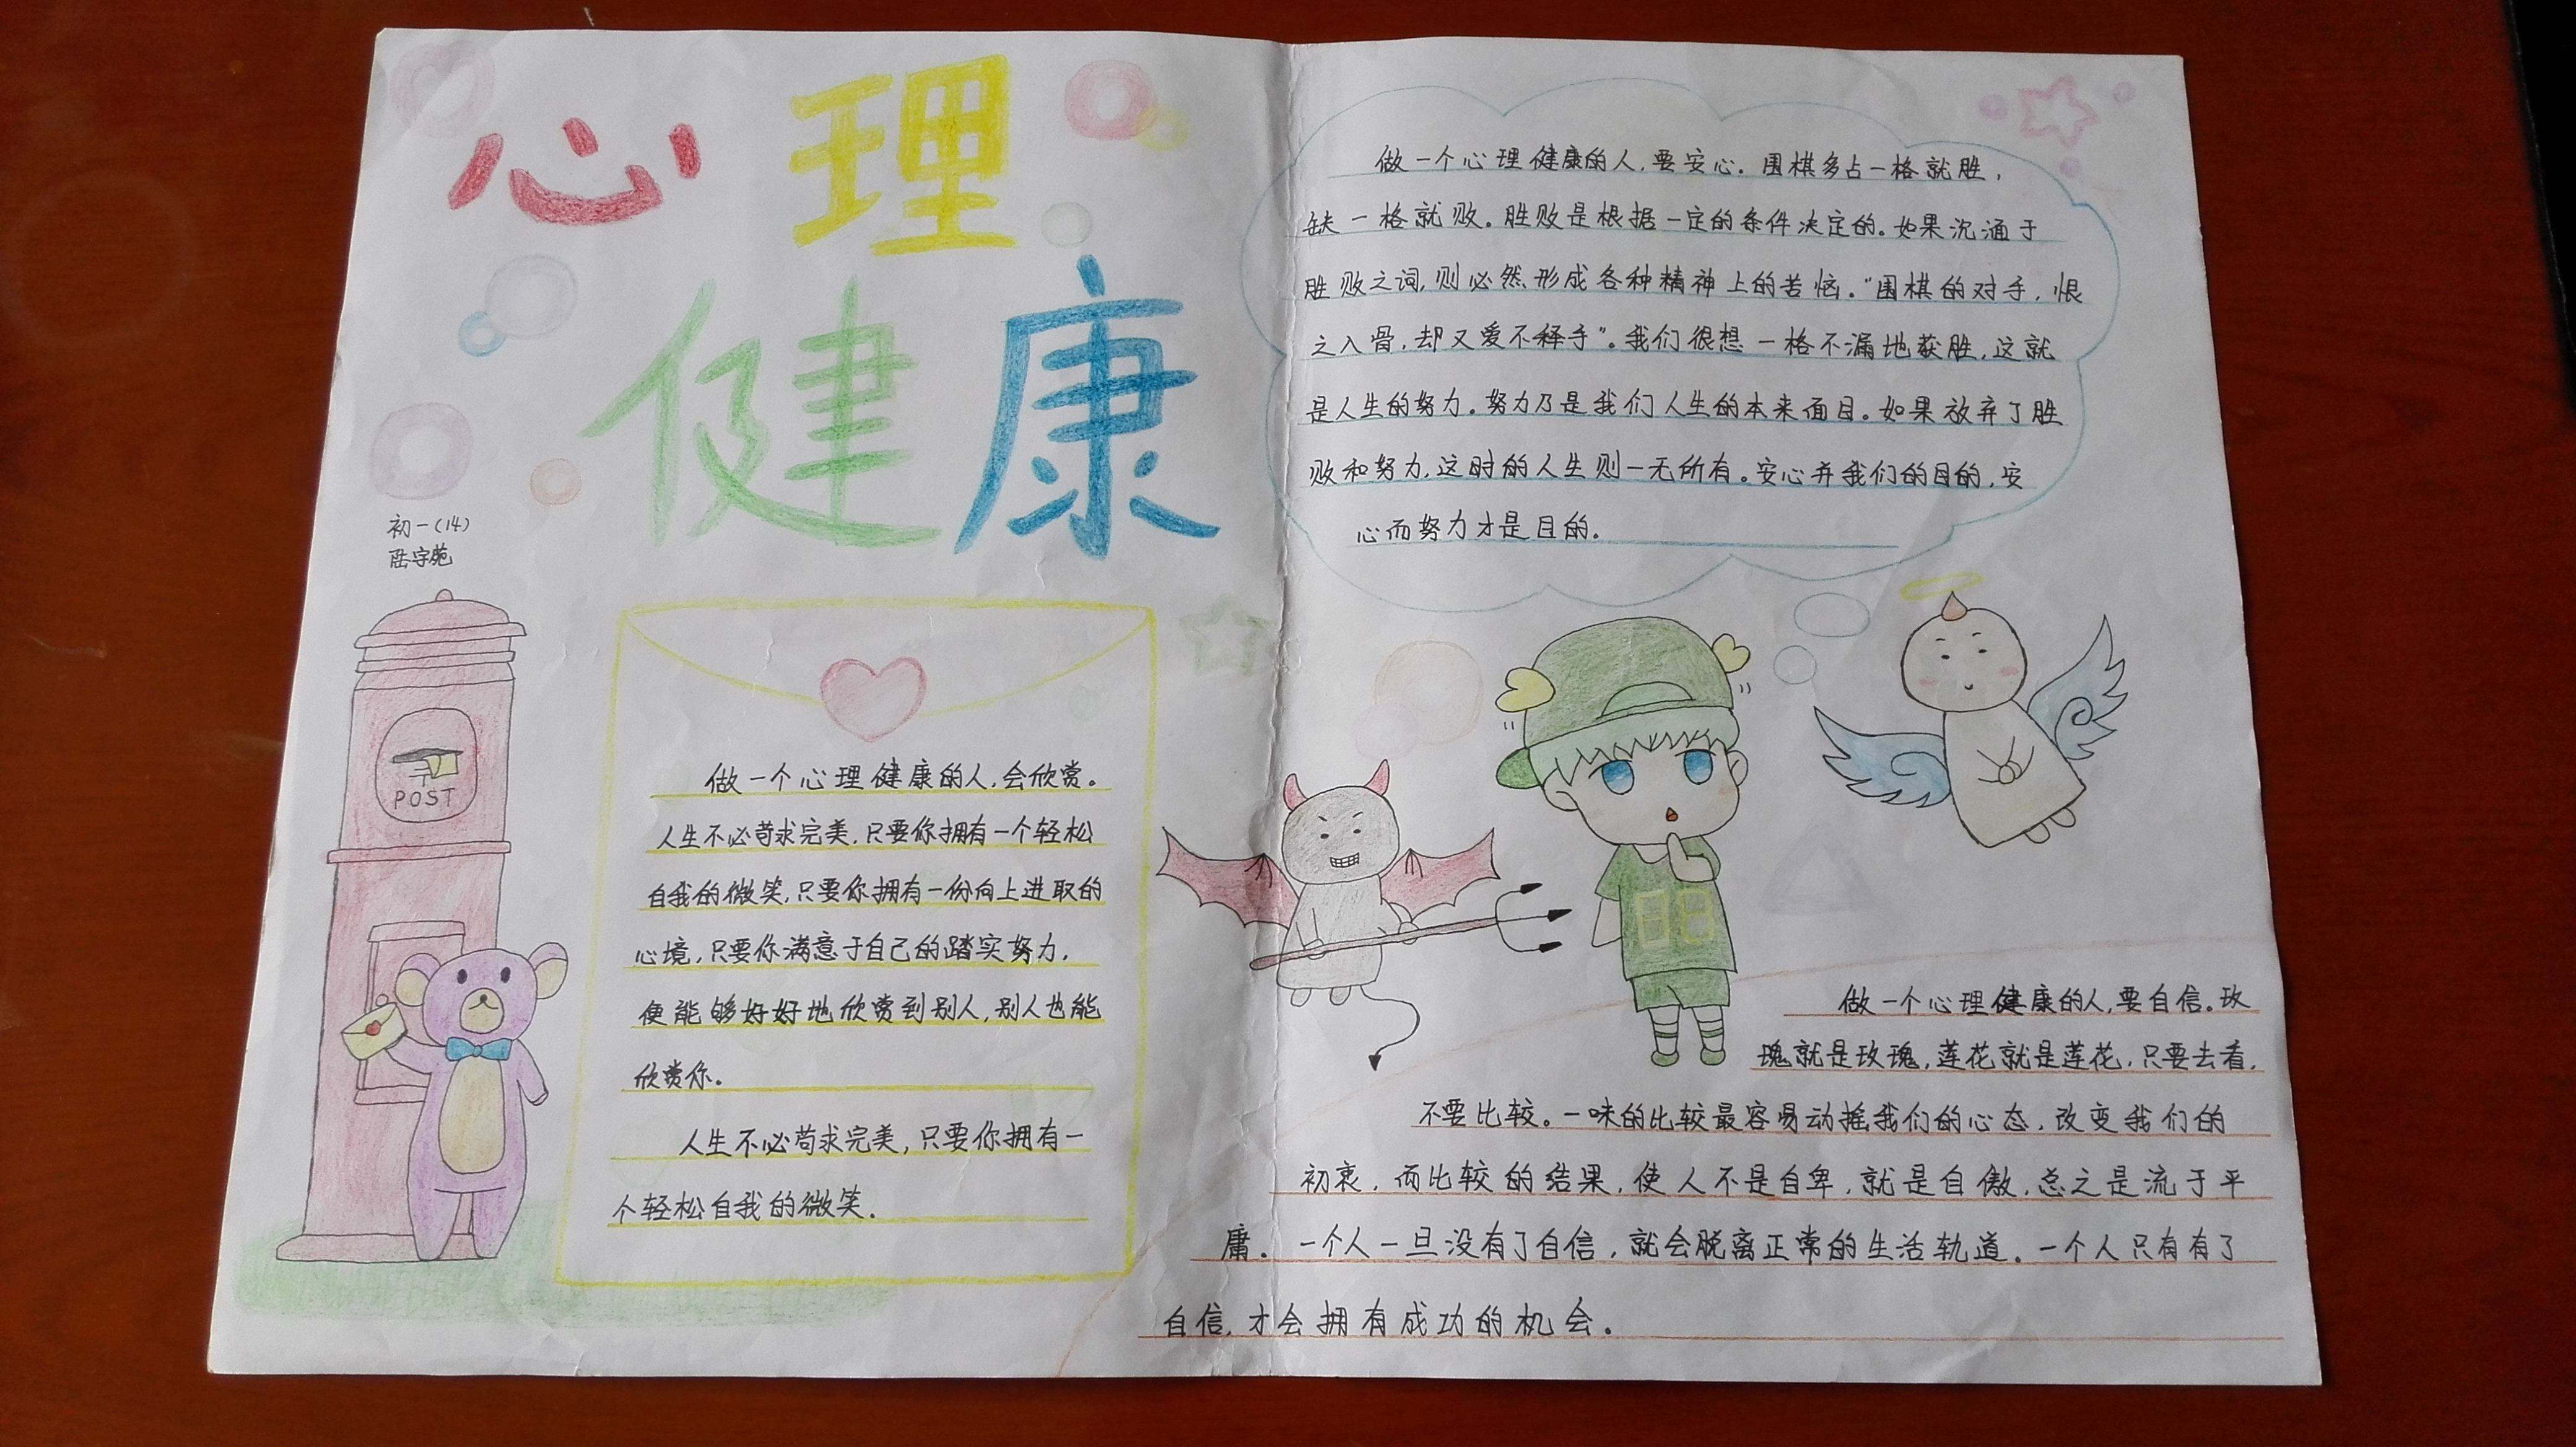 心理
健康
初一(14)
POST
做一个心理健康的人,会欣赏。
人生不必苛求完美,只要你拥有一个轻松
自我的微笑,只要你拥有一份向上进取的
心境,只要你满意于自己的踏实努力,
便能够好好地欣赏到别人,别人也能
欣赏你。
人生不必苛求完美,只要你拥有一
个轻松自我的微笑。
做一个心理健康的人,要安心。围棋多占一格就胜,
缺一格就败。胜败是根据一定的条件决定的。如果沉湎于
胜败之词,则必然形成各种精神上的苦恼。“围棋的对手,恨
之入骨,却又爱不释手”。我们很想一格不漏地获胜,这就
是人生的努力。努力乃是我们人生的本来面目。如果放弃了胜
败和努力,这时的人生则一无所有。安心弃我们的目的,安
心而努力才是目的。
88
做一个心理健康的人,要自信。玫
瑰就是玫瑰,莲花就是莲花,只要去看,
不要比较。一味的比较最容易动摇我们的心态,改变我们的
初衷,而比较的结果,使人不是自卑,就是自傲,总之是流于平
庸。一个人一旦没有了自信,就会脱离正常的生活轨道。一个人只有有了
自信,才会拥有成功的机会。